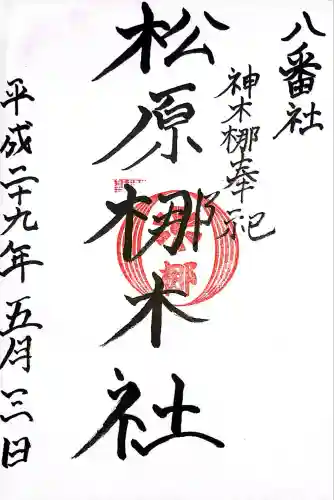 八番社
神木梛奉祀
松原梛木社
平成二十九年五月三日